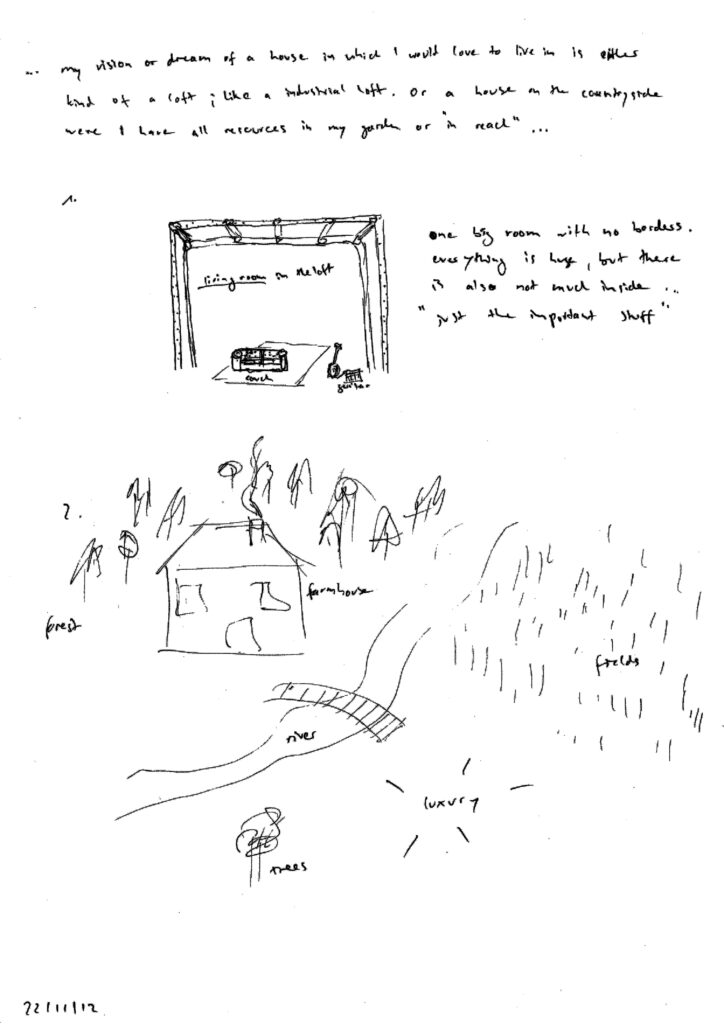 ... my vision or dream of a house in which I would love to live in is either
kind of a loft ; like a industrial loft. Or a house on the countryside
were I have all resources in my garden or "in reach" ...
1.
living room in the loft
couch
guitar
one big room with no borders.
everything is huge, but there
is also not much inside ...
"just the important stuff"
2.
forest
farmhouse
fields
river
luxury
trees
22/11/12